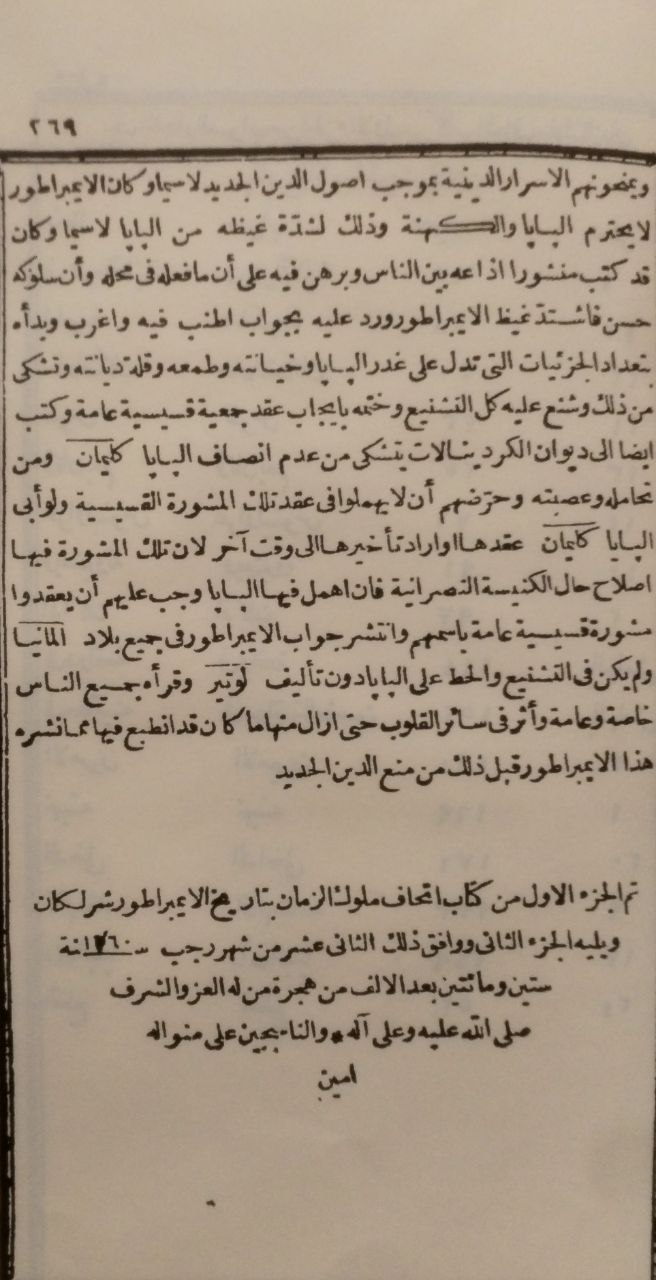 ٢٦٩
ويمنحونهم الاسرار الدينية بموجب اصول الدين الجديد لاسيما وكان الايمبراطور
لايحترم البابا والكهنة وذلك لشدّة غيظه من البابا لاسيما وكان
قد كتب منشورا اذاعه بين الناس وبرهن فيه على أن مافعله فى محله وأن سلوكه
حسن فاشتدّ غيظ الايمبراطور ورد عليه بجواب اطنب فيه واغرب وبدأه
بتعداد الجزئيات التى تدل على غدر البابا وخيانته وطمعه وقلة ديانته وتشكى
من ذلك وشنع عليه كل التشنيع وختمه بايجاب عقد جمعية قسيسية عامة وكتب
ايضا الى ديوان الكردينالات يتشكى من عدم انصاف البابا كليمان ومن
تحامله وعصبته وحرّضهم أن لايهملوا فى عقد تلك المشورة القسيسية ولو أبى
البابا كليمان عقدها او اراد تأخيرها الى وقت آخر لان تلك المشورة فيها
اصلاح حال الكنيسة النصرانية فان اهمل فيها البابا وجب عليهم أن يعقدوا
مشورة قسيسية عامة باسمهم وانتشر جواب الايمبراطور فى جميع بلاد المانيا
ولم يكن فى التشنيع والحط على البابا دون تأليف لوتير وقرأه جميع الناس
خاصة وعامة وأثر فى سائر القلوب حتى ازال منها ما كان قد انطبع فيها مما نشره
هذا الايمبراطور قبل ذلك من منع الدين الجديد
تم الجزء الاول من كتاب اتحاف ملوك الزمان بتاريخ الايمبراطور شرلكان
ويليه الجزء الثانى ووافق ذلك الثانى عشر من شهر رجب سنة ١٢٦٠
ستين ومائتين بعد الالف من هجرة من له العز والشرف
صلى الله عليه وعلى آله * والناسجين على منواله
امين